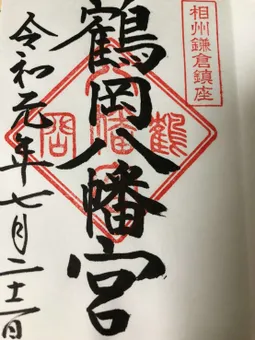 相州鎌倉鎮座
鶴岡八幡宮
令和元年七月二十一日
鶴
岡